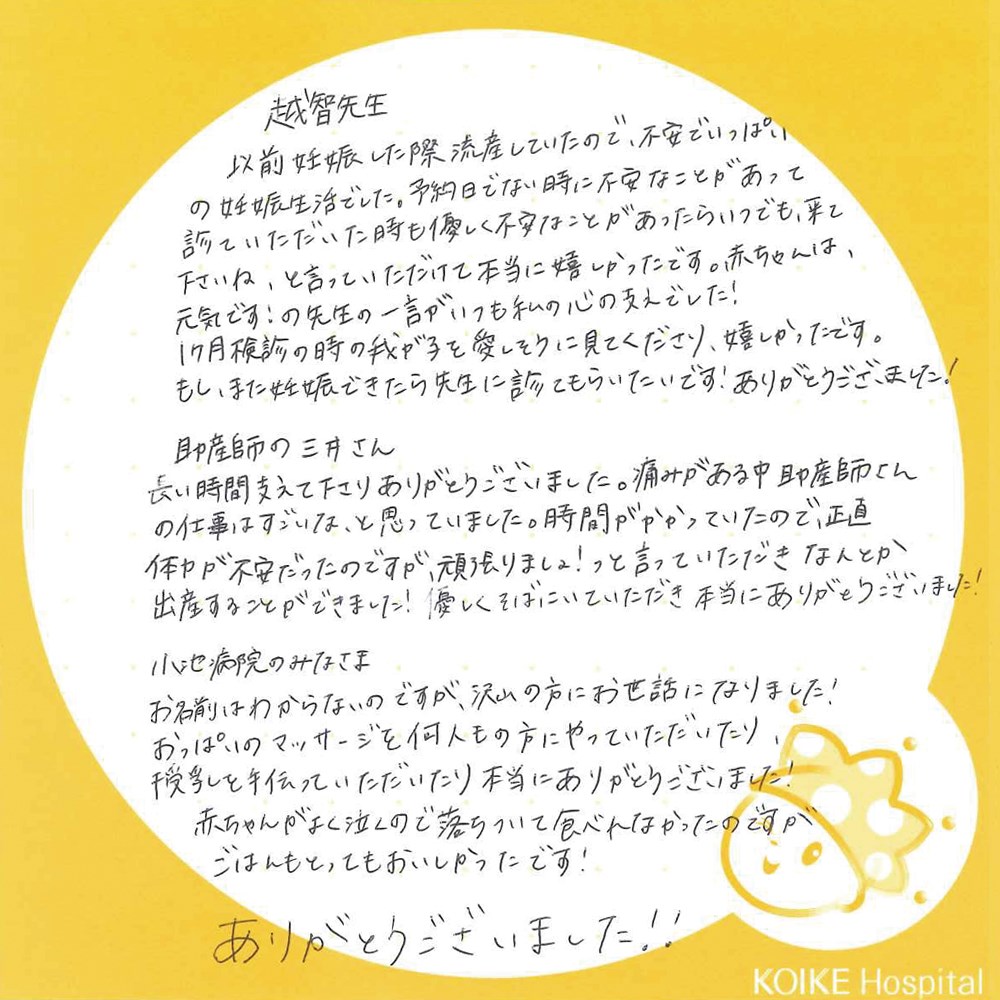 越智先生
以前妊娠した際流産していたので、不安でいっぱい
の妊娠生活でした。予約日でない時に不安なことがあって
診ていただいた時も優しく不安なことがあったらいつでも、来て
下さいね、と言っていただけて本当に嬉しかったです。赤ちゃんは、
元気です!の先生の一言がいつも私の心の支えでした!
1ヶ月検診の時の我が子を愛しそうに見てくださり、嬉しかったです。
もし、また妊娠できたら先生に診てもらいたいです!ありがとうございました!
助産師の三井さん
長い時間支えて下さりありがとうございました。痛みがある中助産師さん
の仕事はすごいな、と思っていました。時間がかかっていたので、正直
体力が不安だったのですが、頑張りましょ!っと言っていただきなんとか
出産することができました!優しくそばにいていただき本当にありがとうございました!
小池病院のみなさま
お名前はわからないのですが、沢山の方にお世話になりました!
おっぱいのマッサージを何人もの方にやっていただいたり、
授乳しを手伝っていただいたり本当にありがとうございました!
赤ちゃんがよく泣くので落ちついて食べれなかったのですが
ごはんもとってもおいしかったです!
ありがとうございました!!
KOIKE Hospital